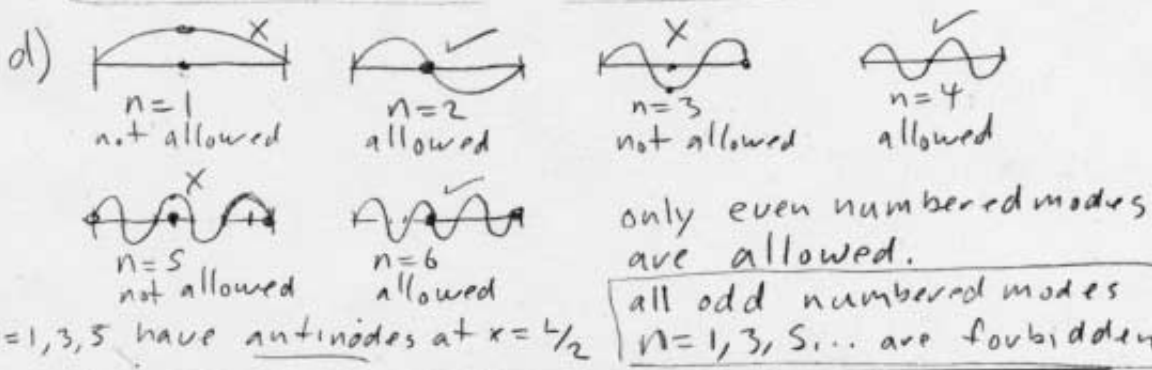 d)
X ✓ X ✓
n=1 n=2 n=3 n=4
not allowed allowed not allowed allowed
X ✓
n=5 n=6
not allowed allowed
only even numbered modes
are allowed.
=1,3,5 have antinodes at x=L/2
all odd numbered modes
n=1,3,5... are forbidden